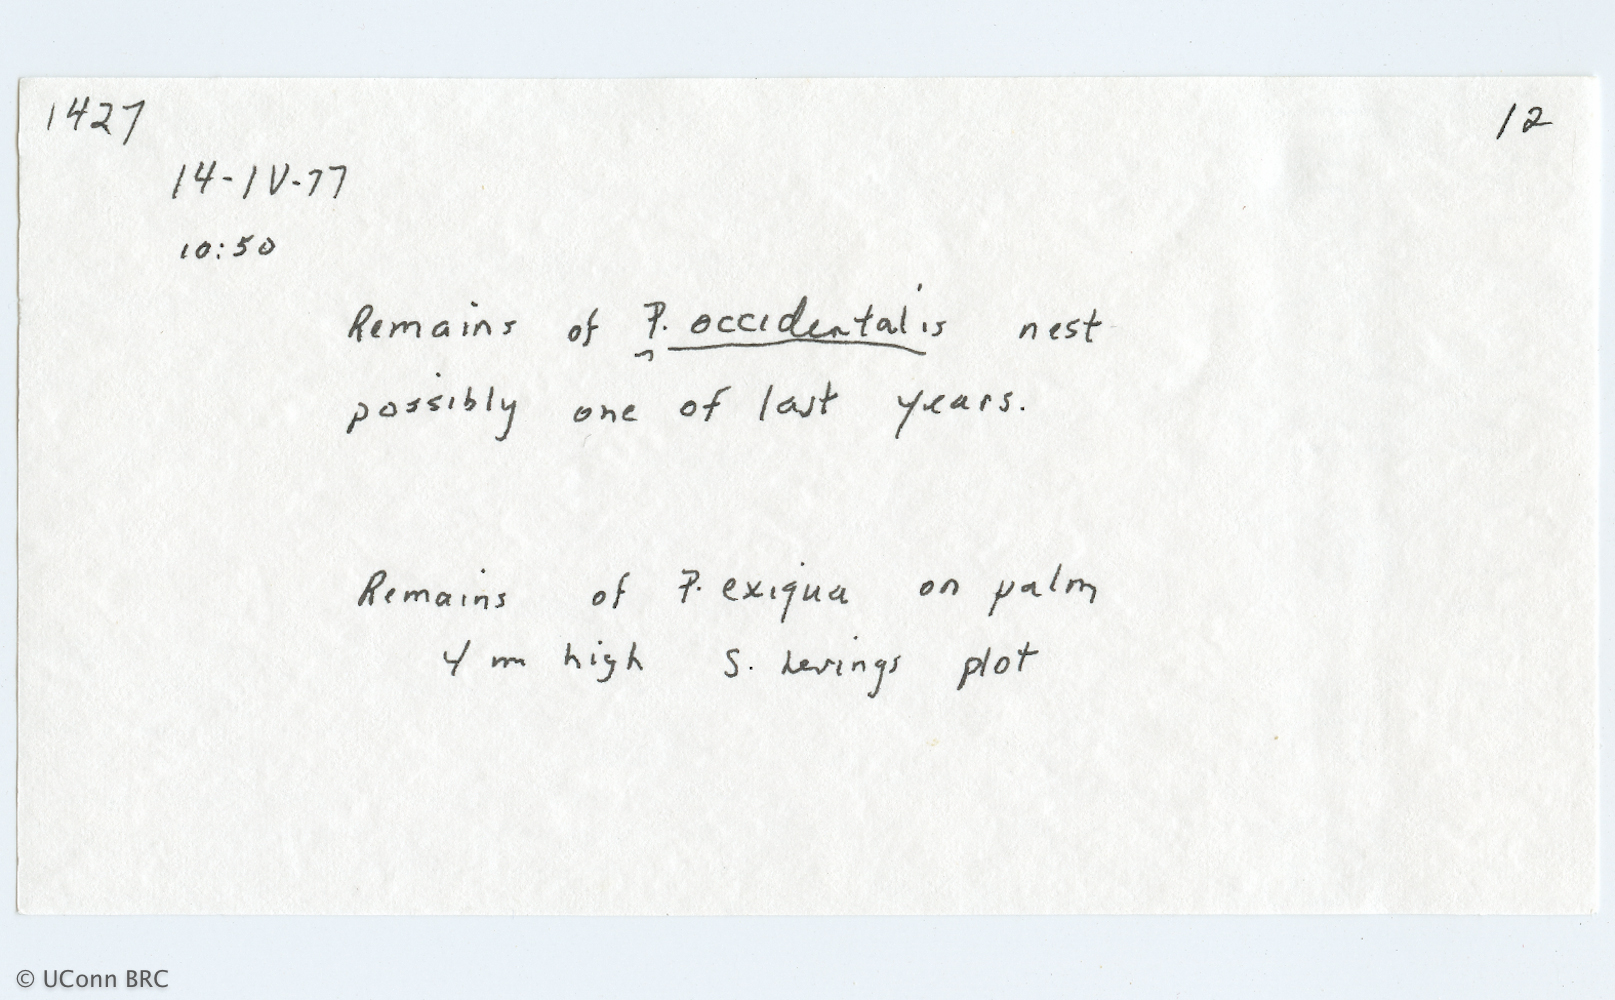 1427
12
14-IV-77
10:50
Remains of P. occidentalis nest
possibly one of last years.
Remains of P. exigua on palm
4 m high S. Levings plot
© UConn BRC